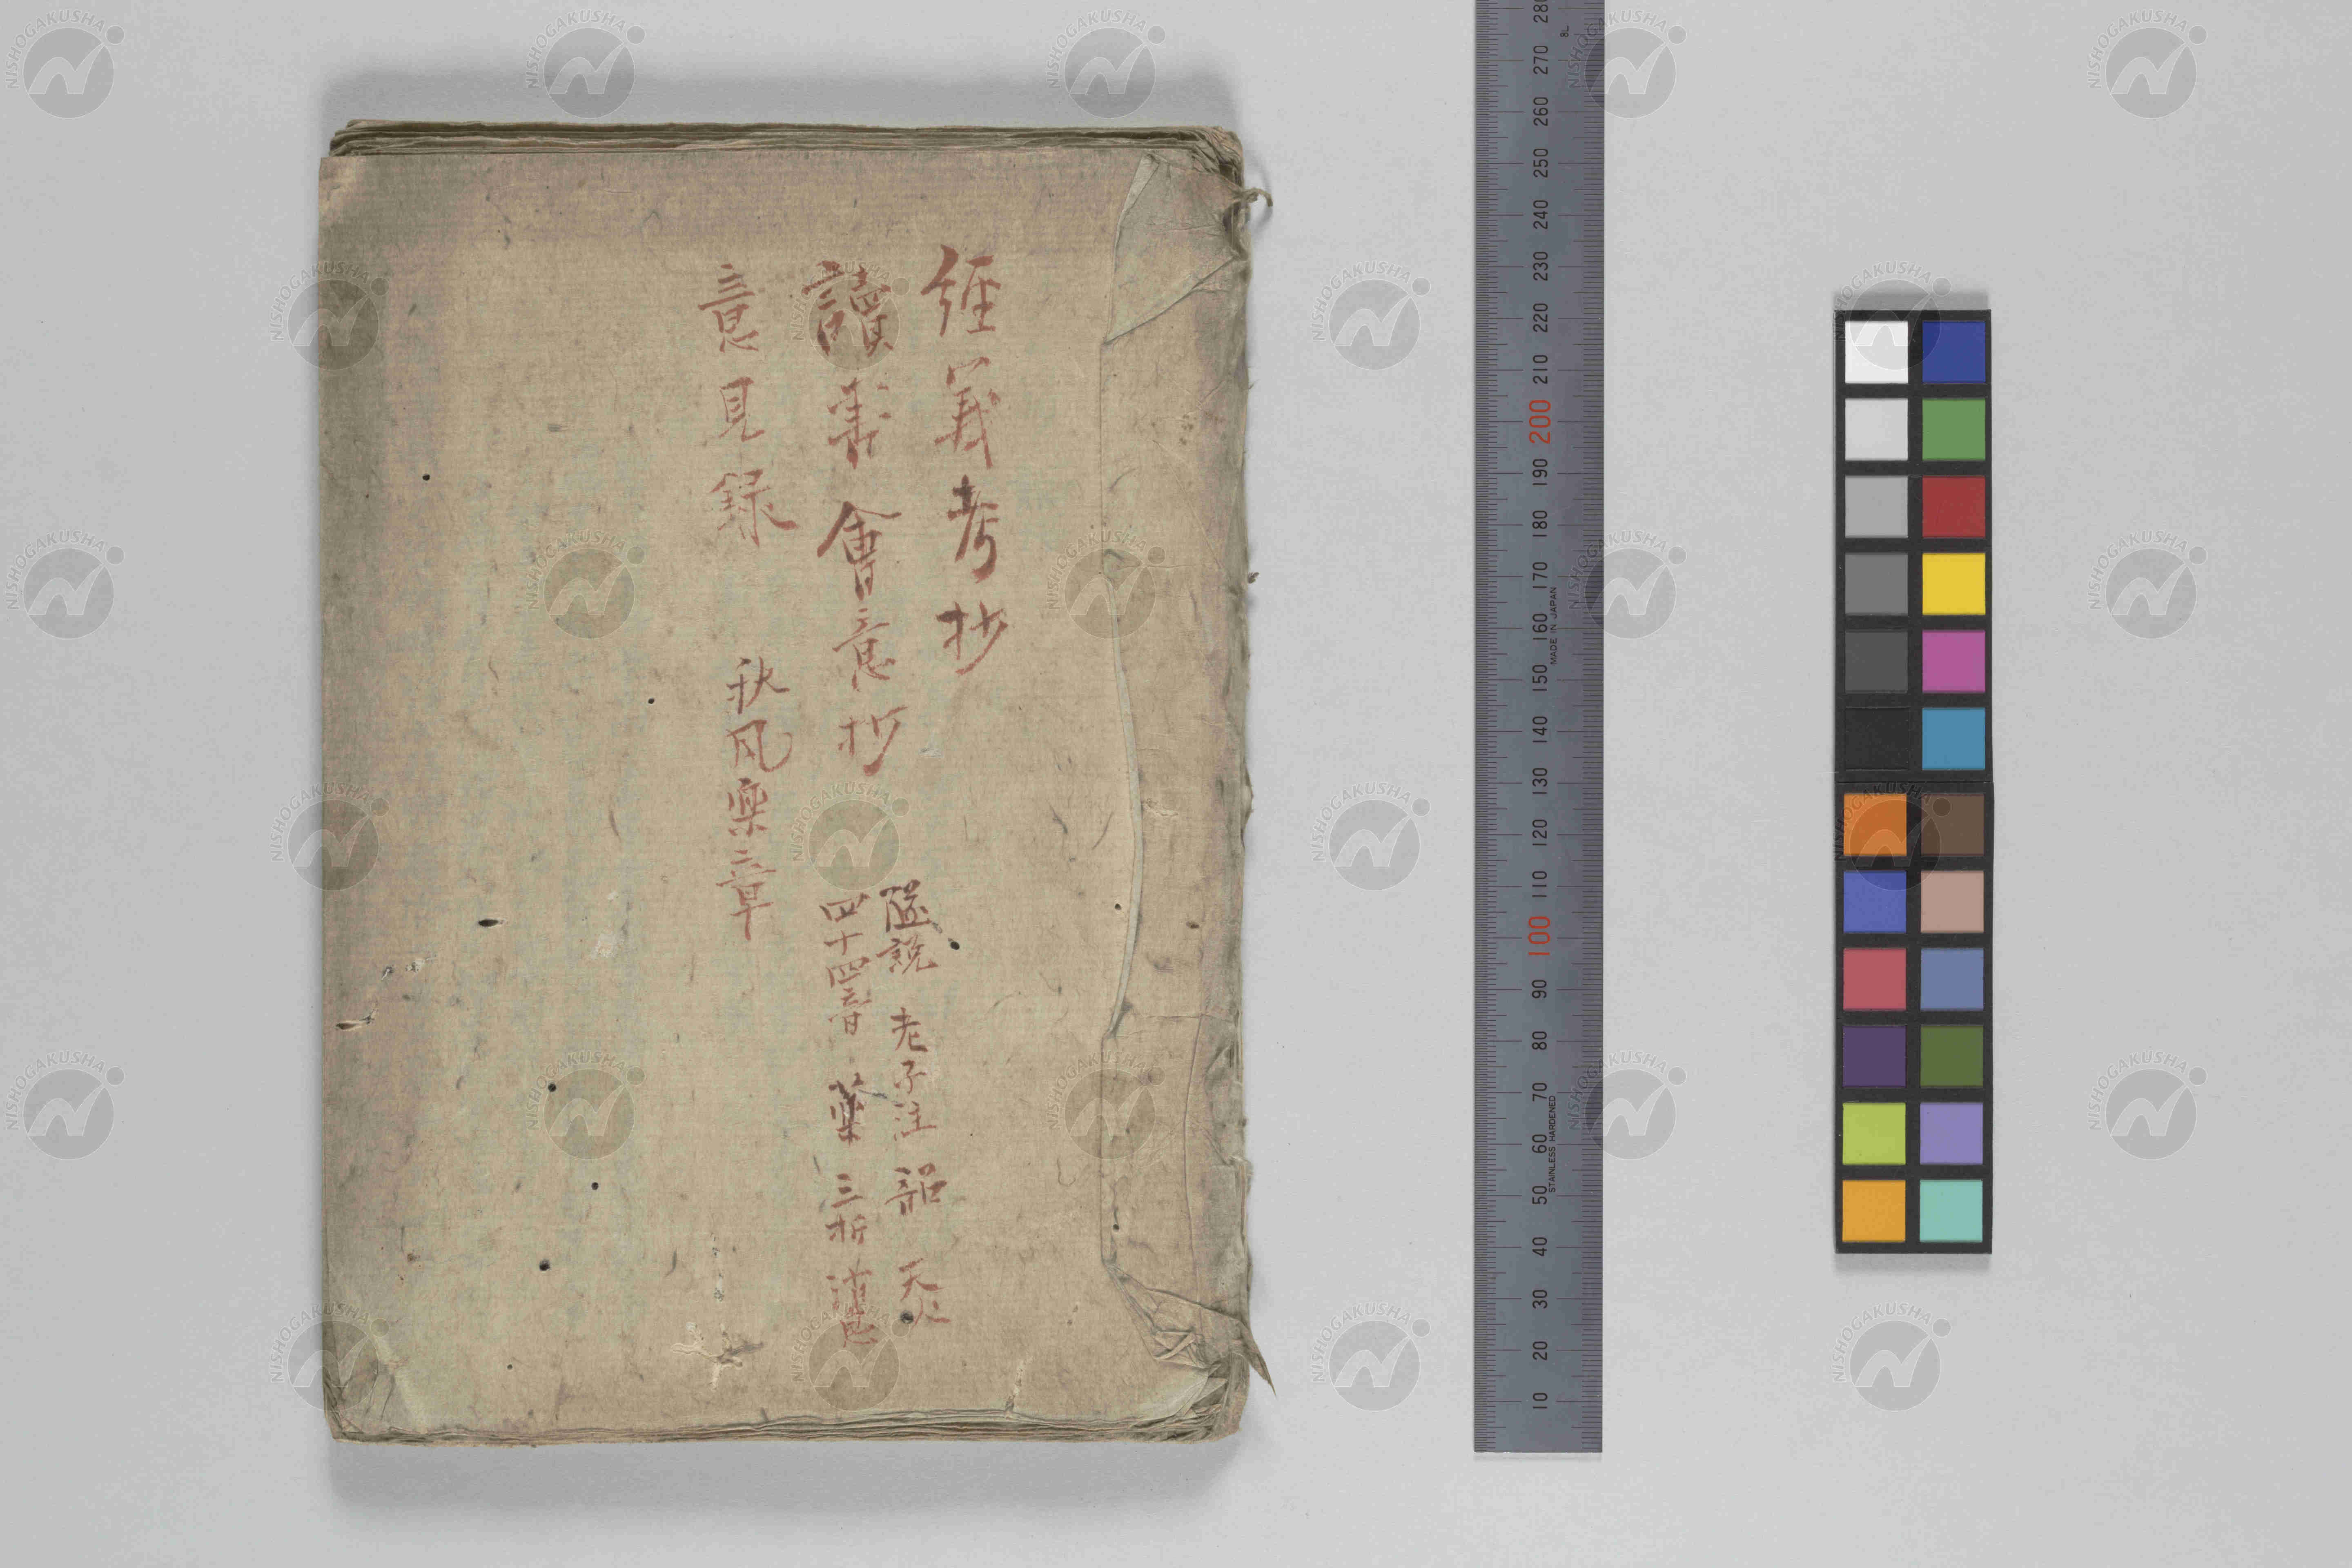 經義考抄
讀書會意抄
隨説 老子注 韶 天
四十四音 葉 三折
意見録 秋風樂章
280
270
260
250
240
230
220
210
200
190
180
170
160
150
140
130
120
110
100
90
80
70
60
50
40
30
20
10
MADE IN JAPAN
STAINLESS HARDENED
NISHOGAKUSHA